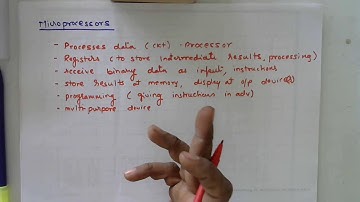 Microprocessors
- Processes data (ckt) - Processor
- Registers (to store intermediate results, processing)
- receive binary data as input, instructions
- store results at memory, display at o/p devices
- programming (giving instructions in adv)
- multi-purpose device